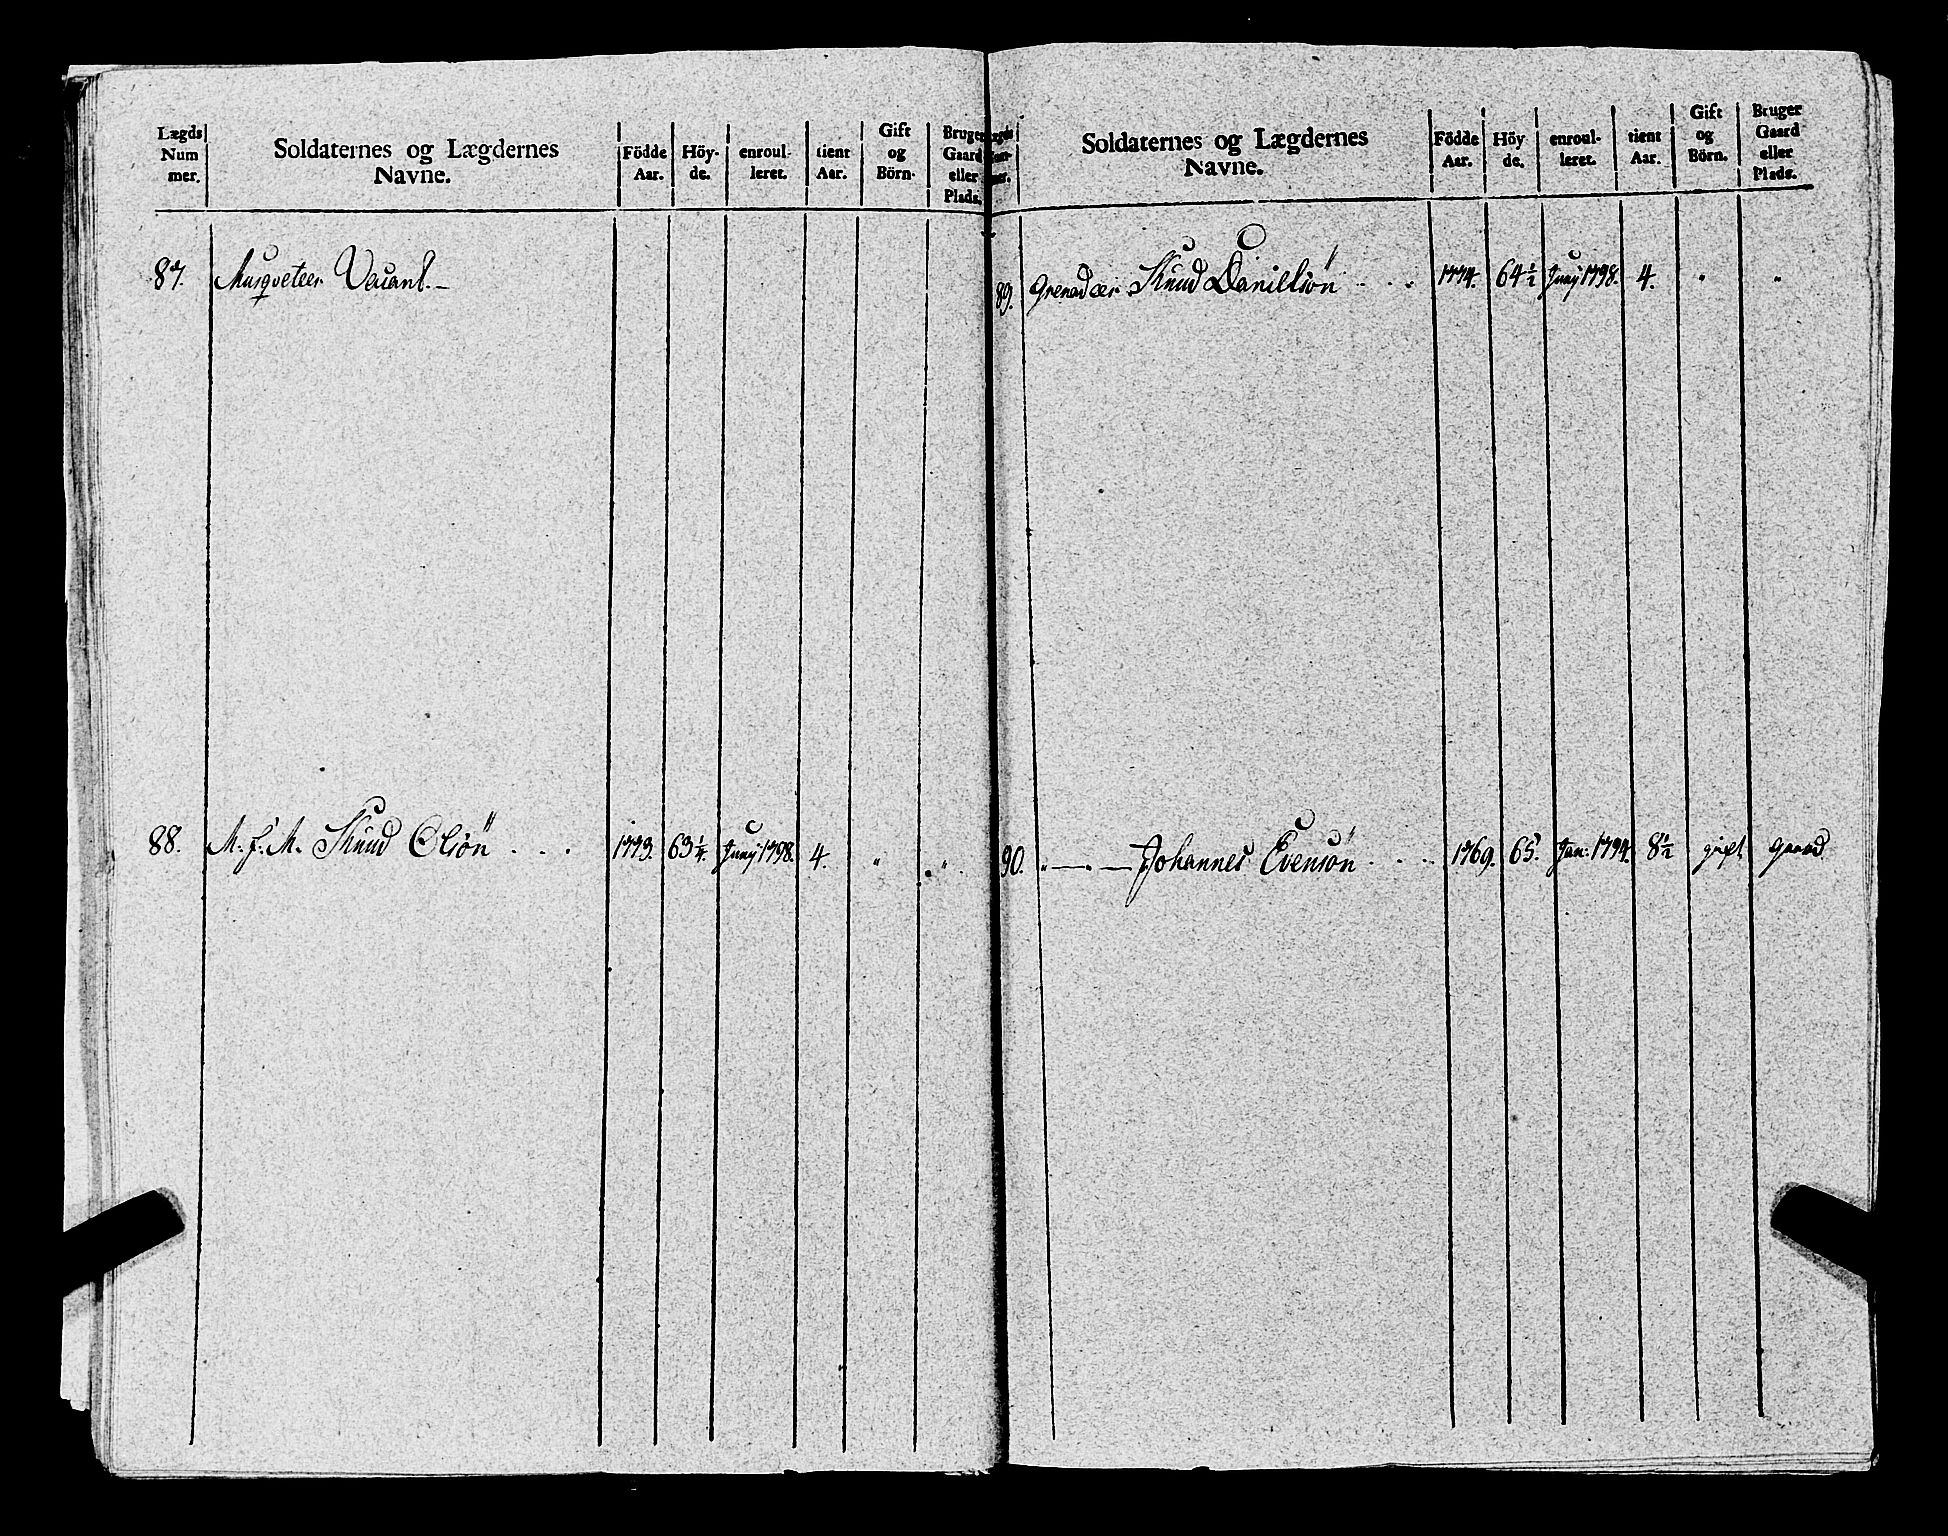 Lægds Num mer. | Soldaternes og Lægdernes Navne. | Födde Aar. | Höy- de. | enroul- leret. | tient Aar. | Gift og Börn. | Bruger Gaard eller Plads.
87. Musqveteer Vacant.
88. M. f. M. Knud Olsön . . . 1773. 63 1/4. Junÿ 1798. 4. " "
Soldaternes og Lægdernes Navne. | Födde Aar. | Höy de. | enroul- leret. | tient Aar. | Gift og Börn. | Bruger Gaard eller Plads.
89. Grenadeer Knud Danielsön . . . 1774. 64 1/2 Junÿ 1798. 4. " "
90. " — " — Johannes Evensön . . . 1769. 65. Jan: 1794. 8 1/2 gift Gaard